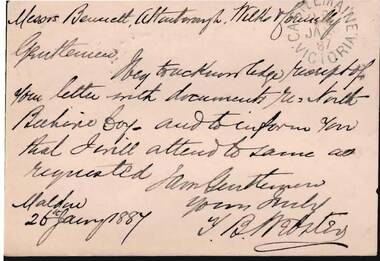 Messrs Bennett Attenborough, Wilks & Gunility
CASTLEMAINE
JA
87
VICTORIA
Gentlemen
I beg to acknowledge receipt of
your letter with documents re North
Beehive Coy. and to inform you
that I will attend to same as
requested
I am Gentlemen
Yours truly
Maldon
26th Jany 1887
J B Webster